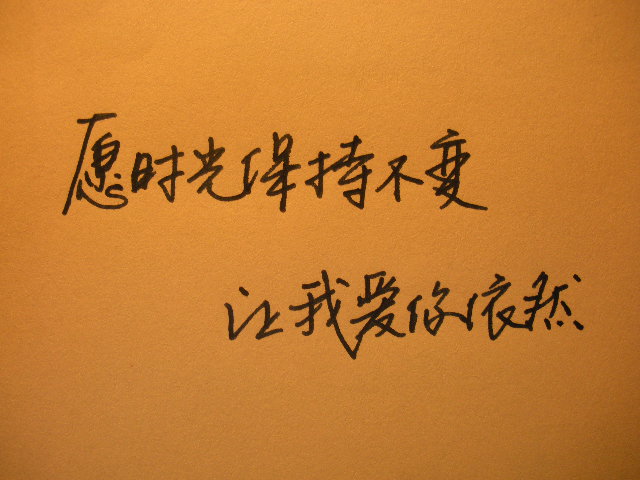 愿时光保持不变
让我爱你依然